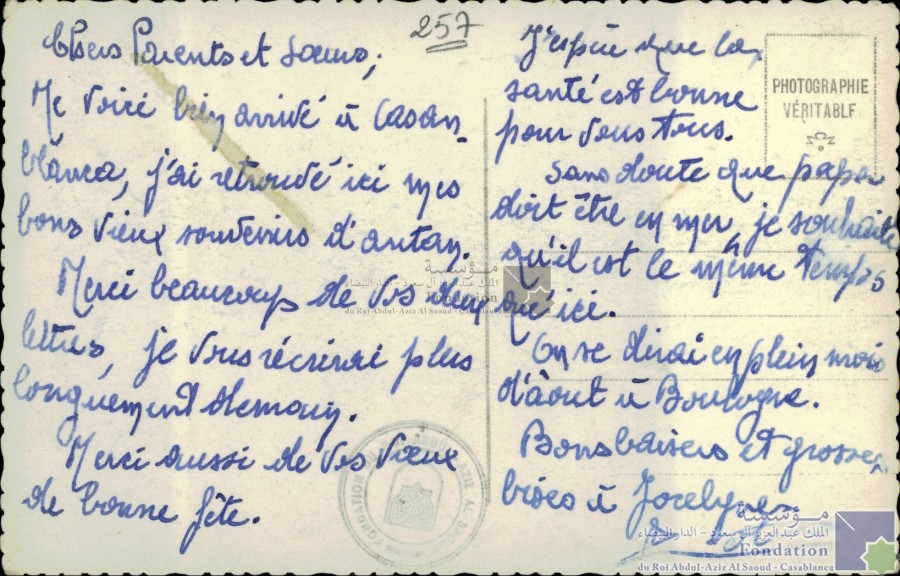 257
Chers Parents et Sœurs,
Me voici bien arrivé à Casan-
blanca, j'ai retrouvé ici mes
bons vieux souvenirs d'antan.
Merci beaucoup de vos deux
lettres, je vous récrirai plus
longuement demain.
Merci aussi de vos vœux
de bonne fête.
J'espère que la
santé est bonne
pour vous tous.
Sans doute que papa
doit être en mer, je souhaite
qu'il est le même temps
qu'ici.
On se dirai en plein mois
d'âout à Boulogne.
Bons baisers et grosses
bises à Jocelyne
PHOTOGRAPHIE
VÉRITABLE
مؤسسة
الملك عبد العزيز آل سعود - الدار البيضاء
Fondation
du Roi Abdul-Aziz Al Saoud - Casablanca
مؤسسة
الملك عبد العزيز آل سعود - الدار البيضاء
Fondation
du Roi Abdul-Aziz Al Saoud - Casablanca